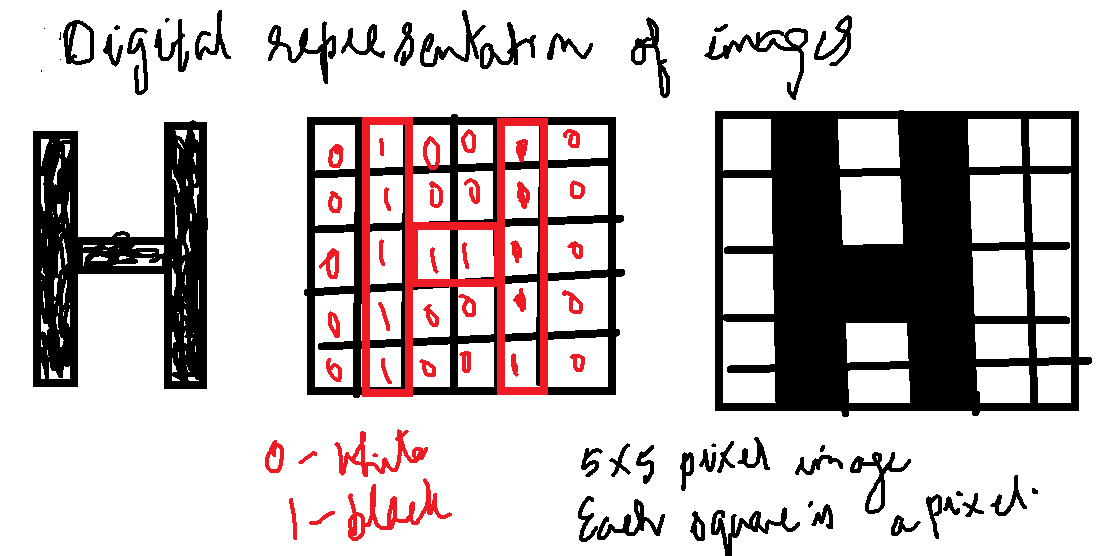 Digital representation of images
0 1 0 0 0
0 1 0 0 0
0 1 1 1 0
0 1 0 0 0
0 1 0 0 1 0
0 - White
1 - black
5x5 pixel image
Each square is a pixel.